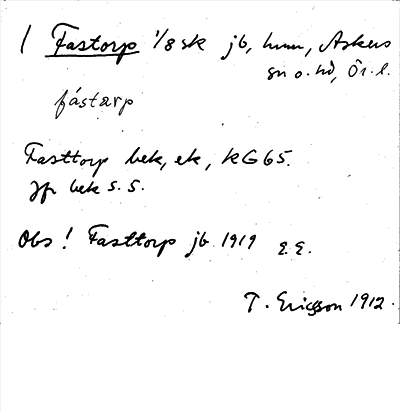 / Fastorp 1/8 sk jb, hmn, Askers
sn o. hd, Ör. l.
fástarp
Fasttorp bek, ek, KG65.
Jfr bek s. S.
Obs! Fasttorp jb 1919 E.E.
T. Ericsson 1912.